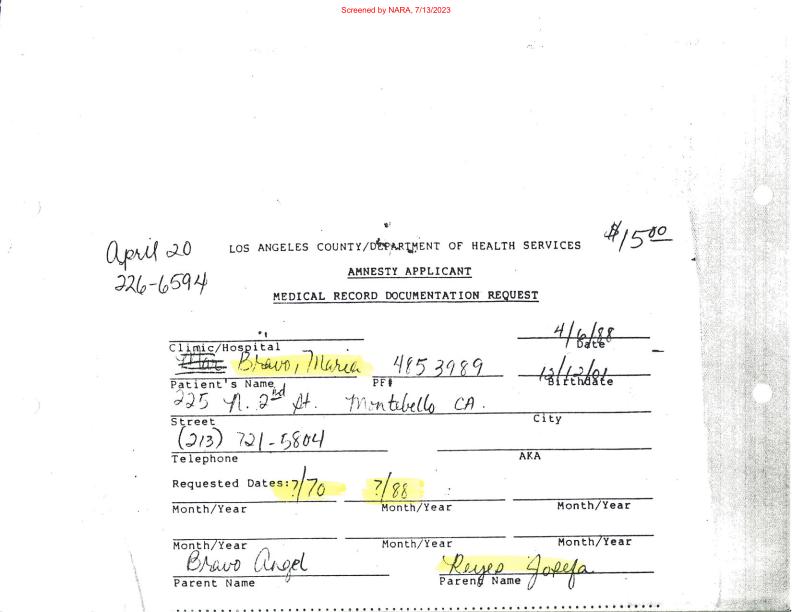 Screened by NARA, 7/13/2023
April 20
226-6594
$15.00
LOS ANGELES COUNTY/DEPARTMENT OF HEALTH SERVICES
AMNESTY APPLICANT
MEDICAL RECORD DOCUMENTATION REQUEST
4/6/88
Clinic/Hospital Date
Bravo, Maria 4853989 12/12/01
Patient's Name PF# Birthdate
225 N. 2nd St. Montebello CA.
Street City
(213) 721-5804
Telephone AKA
Requested Dates: ?/70 ?/88
Month/Year Month/Year Month/Year
Month/Year Month/Year Month/Year
Bravo Angel Reyes Josefa
Parent Name Parent Name